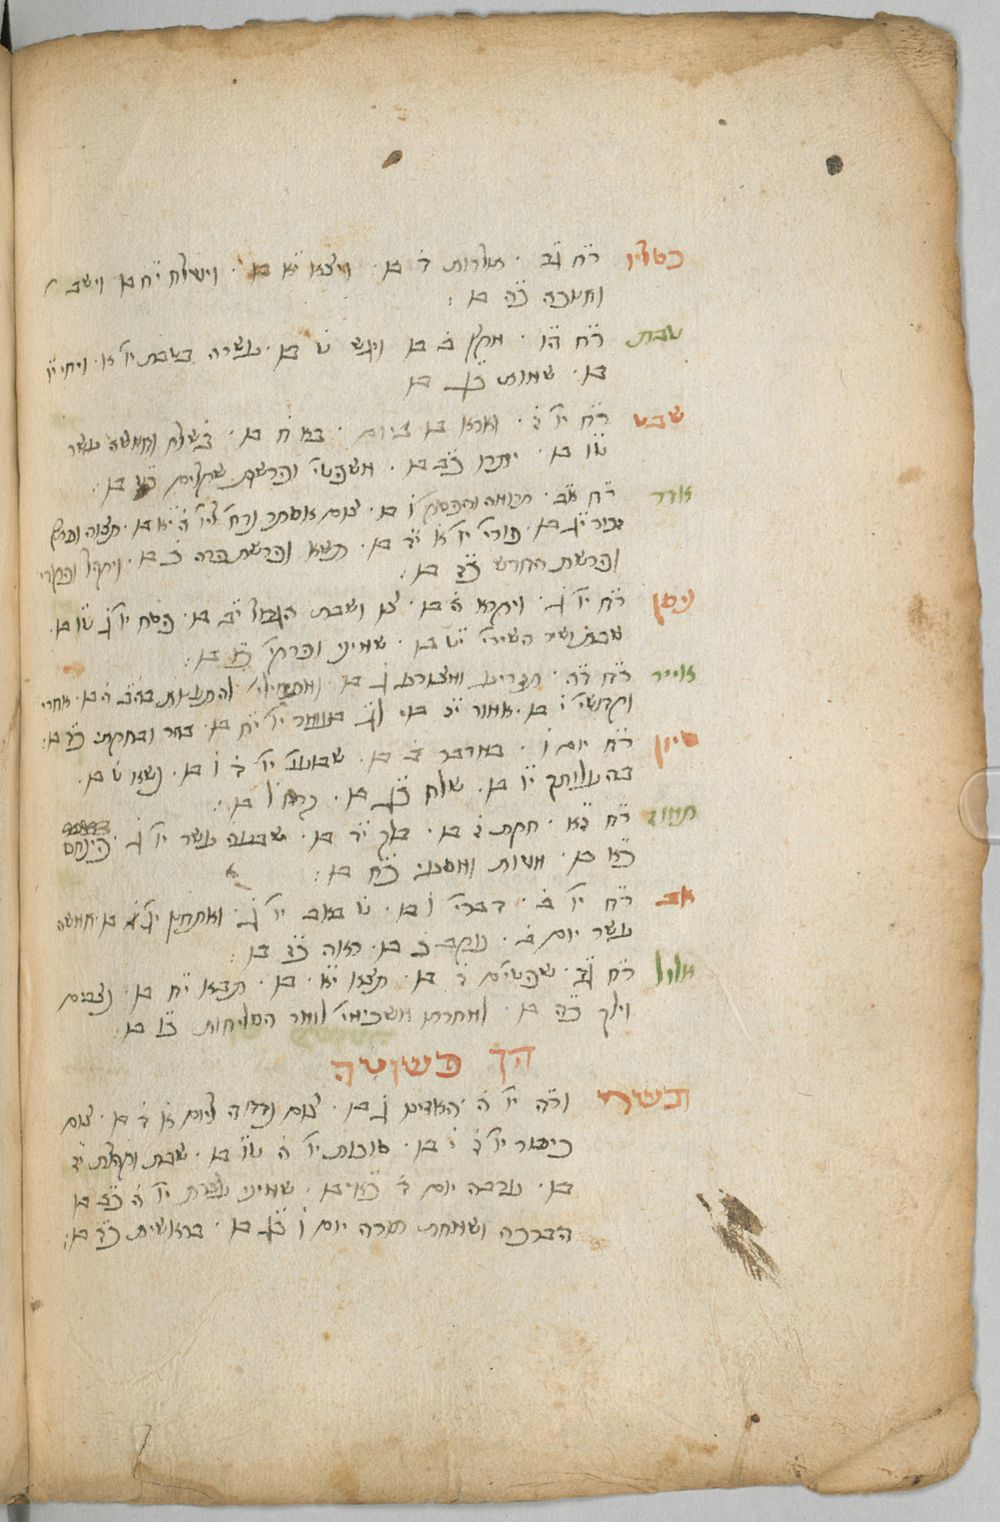 כסליו ר״ח גב · תולדות ד בו · ויצא יא בו · וישלח י״ח בו וישב
וחנוכה כ״ה בו :
טבת ר״ח הו · מקץ ב בו ויגש ט בו · עשרה בטבת יו׳ א · ויחי יו
בו · שמות כ״ג בו
שבט ר״ח יו׳ ז · וארא בו ביום · בא ח בו · בשלח וחמשה עשר
טו בו · יתרו כ״ב בו · משפטי׳ ופרשת שקלים כ״ט בו :
אדר ר״ח אב · תרומה והפסק׳ ו בו · צום אסתר ו בו · תצוה ופרש׳
זכור י״ג בו · פורי׳ יו׳ א י״ד בו · תשא ופרשת פרה כ בו · ויקהל ופקודי
ופרשת החדש כ״ז בו :
ניסן ר״ח יו׳ ג · ויקרא ה בו · צו ושבת הגדול י״ב בו · פסח יו׳ ג טו בו ·
שבת ושיר השירי׳ י״ט בו · שמיני ופרקי׳ כ״ו בו :
אייר ר״ח דה · תזריע ומצורע ג בו · ומתחילי׳ להתענות בה״ב ה בו · אחרי
וקדושי׳ י בו · אמור י״ז בו · ל״ג בעומר יו׳ י״ח בו · בהר ובחקתי כ״ד בו :
סיון ר״ח יום ו · במדבר ב בו · שבועו׳ יו׳ ד ו בו · נשא ט בו ·
בהעלותך י״ו בו · שלח כ״ג בו · קרח ל בו :
תמוז ר״ח אז · חקת ז בו · בלק י״ד בו · שבעה עשר יו׳ ג · פינחס
כ״א בו · מטות ומסעי כ״ח בו :
אב ר״ח יו׳ ב · דברי׳ ו בו · ט באב יו׳ ג · ואתחנן י״ג בו · חמשה
עשר יום ב · עקב כ בו · ראה כ״ז בו :
אלול ר״ח גד · שפטים ד בו · תצא י״א בו · תבא י״ח בו · נצבים
וילך כ״ה בו · למחרת משכימי׳ לומר הסליחות כ״ו בו :
הך פשוטה
תשרי ור״ה יו׳ ה · האזינו ג בו · צום גדליה ליום א ד בו · צום
כיפור יו׳ ז י בו · סוכות יו׳ ה טו בו · שבת וקהלת י״ז
בו · ערבה יום ד כ״א בו · שמיני עצרת יו׳ ה כ״ב בו
הברכה ושמחת תורה יום ו כ״ג בו · בראשית כ״ד בו :